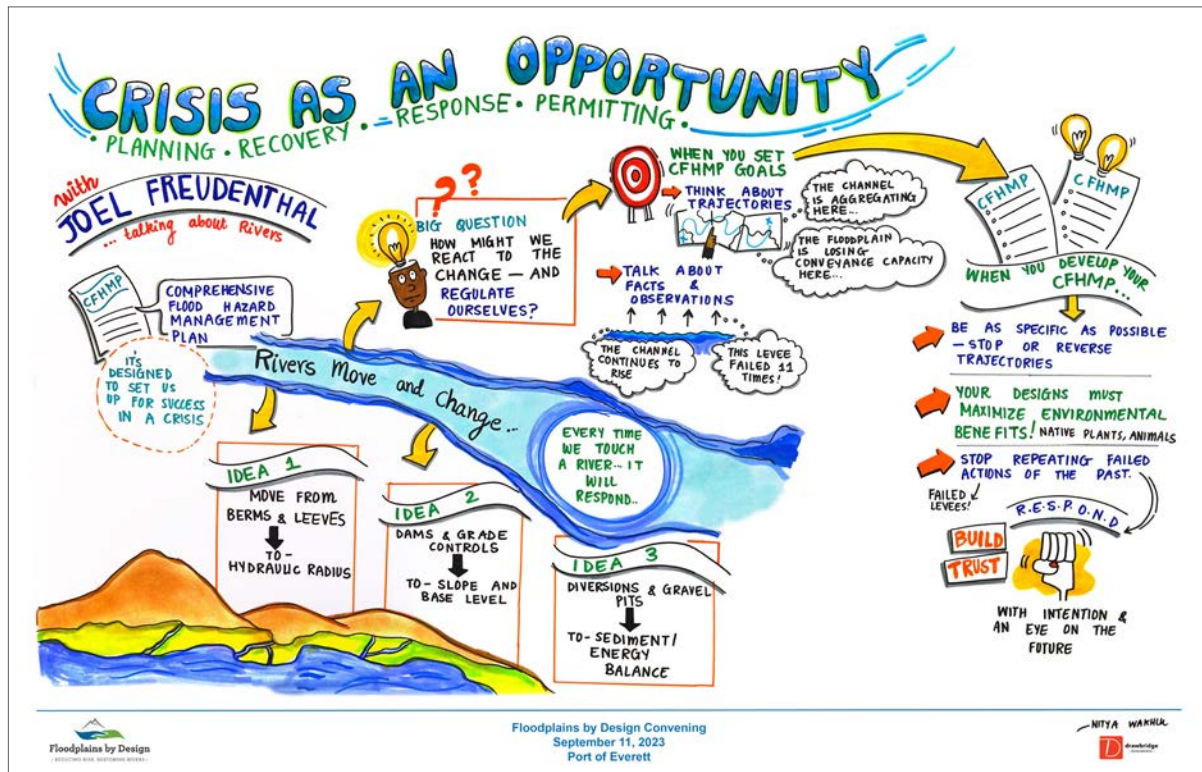 CRISIS AS AN OPPORTUNITY
• PLANNING • RECOVERY • RESPONSE • PERMITTING •
with
JOEL FREUDENTHAL
... talking about Rivers
CFHMP
COMPREHENSIVE
FLOOD HAZARD
MANAGEMENT
PLAN
IT'S
DESIGNED
TO SET US
UP FOR SUCCESS
IN A CRISIS
Rivers Move and change...
EVERY TIME
WE TOUCH
A RIVER... IT
WILL
RESPOND..
IDEA 1
MOVE FROM
BERMS & LEEVES
TO-
HYDRAULIC RADIUS
IDEA 2
DAMS & GRADE
CONTROLS
TO- SLOPE AND
BASE LEVEL
IDEA 3
DIVERSIONS & GRAVEL
PITS
TO- SEDIMENT/
ENERGY
BALANCE
? ?
BIG QUESTION
HOW MIGHT WE
REACT TO THE
CHANGE — AND
REGULATE
OURSELVES?
WHEN YOU SET
CFHMP GOALS
THINK ABOUT
TRAJECTORIES
THE CHANNEL
IS AGGREGATING
HERE...
THE FLOODPLAIN
IS LOSING
CONVEYANCE CAPACITY
HERE...
TALK ABOUT
FACTS &
OBSERVATIONS
THE CHANNEL
CONTINUES TO
RISE
THIS LEVEE
FAILED 11
TIMES!
CFHMP
CFHMP
WHEN YOU DEVELOP YOUR
CFHMP...
BE AS SPECIFIC AS POSSIBLE
— STOP OR REVERSE
TRAJECTORIES
YOUR DESIGNS MUST
MAXIMIZE ENVIRONMENTAL
BENEFITS! NATIVE PLANTS, ANIMALS
STOP REPEATING FAILED
ACTIONS OF THE PAST.
FAILED
LEVEES!
R.E.S.P.O.N.D
BUILD
TRUST
WITH INTENTION &
AN EYE ON THE
FUTURE
Floodplains by Design
REDUCING RISK, RESTORING RIVERS
Floodplains by Design Convening
September 11, 2023
Port of Everett
—NITYA WAKHLU
D
drawbridge